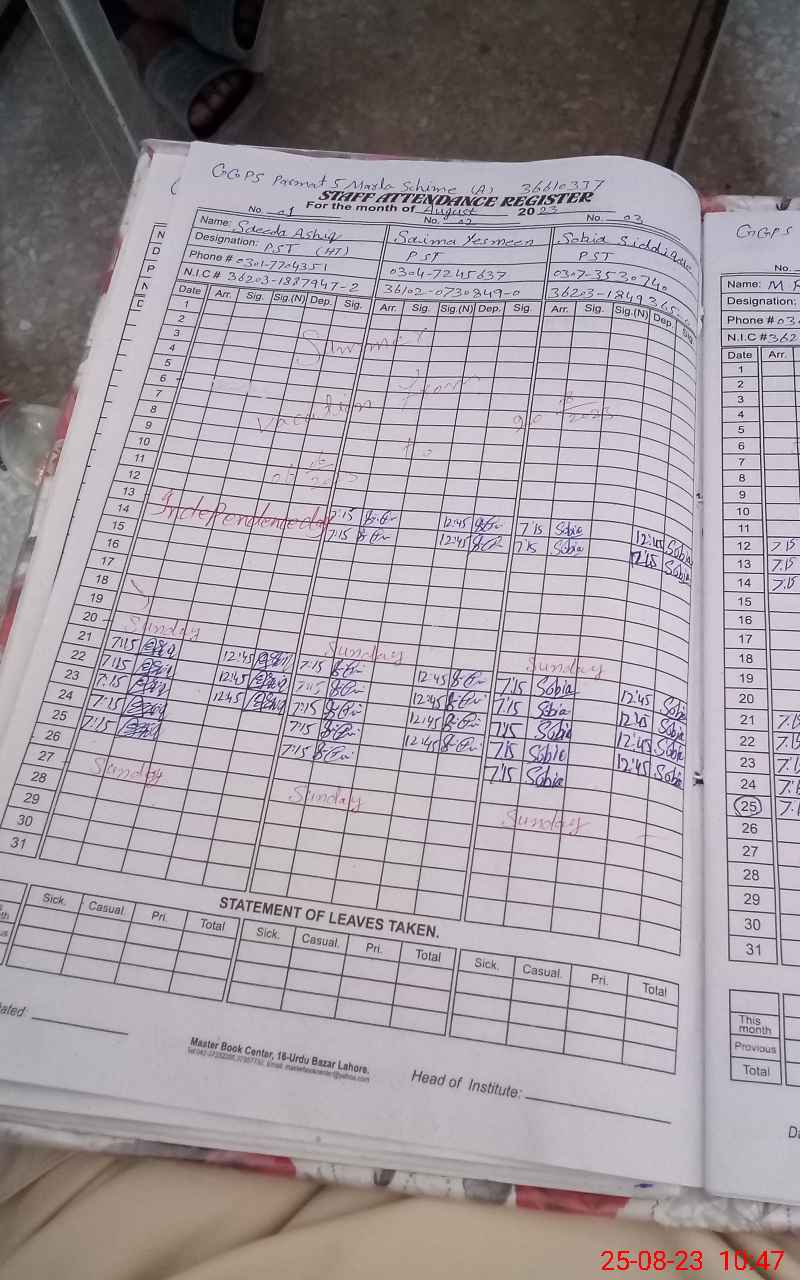 GGPS Parmat 5 Marla Schime (A) 36610337
STAFF ATTENDANCE REGISTER
For the month of August 2023
No. 01 No. 02 No. 03
Name: Saeeda Ashiq Saima Yesmeen Sobia Siddique
Designation: PST (HT) PST PST
Phone # 0301-7704351 0304-7245637 0307-3530740
N.I.C # 36203-1887947-2 36102-0730849-0 36203-1849365
Date Arr. Sig. Sig.(N) Dep. Sig. Arr. Sig. Sig.(N) Dep. Sig. Arr. Sig. Sig.(N) Dep. Sig
1
2
3
4 Summer
5
6
7 from
8 Vacation
9 2023
10 to
11
12 2023
13
14 Independence day
15 7:15 12:45 7:15 Sobia 12:45 Sobia
16 7:15 12:45 7:15 Sobia 7:15 Sobia
17
18
19
20 Sunday Sunday Sunday
21 7:15 12:45 7:15 12:45 7:15 Sobia 12:45 Sobia
22 7:15 12:45 7:15 12:45 7:15 Sobia 12:45 Sobia
23 7:15 12:45 7:15 12:45 7:15 Sobia 12:45 Sobia
24 7:15 7:15 12:45 7:15 Sobia 12:45 Sobia
25 7:15 7:15 7:15 Sobia
26
27 Sunday Sunday Sunday
28
29
30
31
STATEMENT OF LEAVES TAKEN.
Sick. Casual. Pri. Total Sick. Casual. Pri. Total Sick. Casual. Pri. Total
Master Book Center, 16-Urdu Bazar Lahore.
Head of Institute:
GGPS
No.
Name: M
Designation:
Phone # 03
N.I.C # 362
Date Arr.
1
2
3
4
5
6
7
8
9
10
11
12 7:15
13 7:15
14 7:15
15
16
17
18
19
20
21
22
23
24
25
26
27
28
29
30
31
This month
Previous
Total
25-08-23 10:47